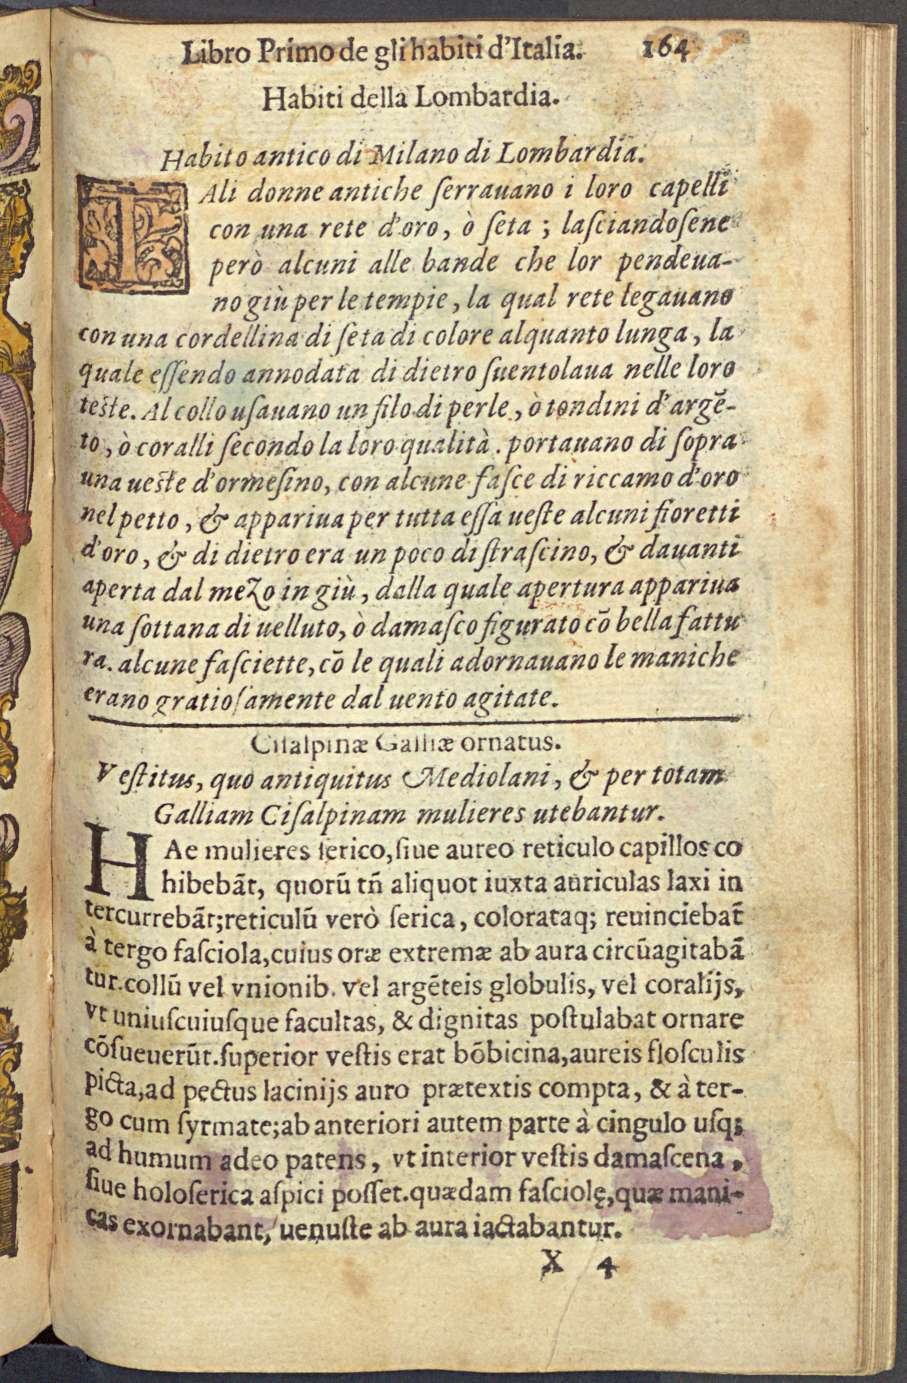 Libro Primo de gli habiti d'Italia. 164
Habiti della Lombardia.
Habito antico di Milano di Lombardia.
TAli donne antiche ſerrauano i loro capelli
con una rete d'oro, ò ſeta ; laſciandoſene
però alcuni alle bande che lor pendeua-
no giù per le tempie, la qual rete legauano
con una cordellina di ſeta di colore alquanto lunga, la
quale eſſendo annodata di dietro ſuentolaua nelle loro
teſte. Al collo uſauano un filo di perle, ò tondini d'argẽ-
to, ò coralli ſecondo la loro qualità. portauano di ſopra
una ueſte d'ormeſino, con alcune faſce di riccamo d'oro
nel petto, & appariua per tutta eſſa ueſte alcuni fioretti
d'oro, & di dietro era un poco di ſtraſcino, & dauanti
aperta dal mezo in giù, dalla quale apertura appariua
una ſottana di uelluto, ò damaſco figurato cõ bella fattu
ra. alcune faſciette, cõ le quali adornauano le maniche
erano gratioſamente dal uento agitate.
Ciſalpinæ Galliæ ornatus.
Veſtitus, quo antiquitus Mediolani, & per totam
Galliam Ciſalpinam mulieres utebantur.
HAe mulieres ſerico, ſiue aureo reticulo capillos co
hibebãt, quorũ tñ aliquot iuxta auriculas laxi in
tercurrebãt; reticulũ verò ſerica, colorataq; reuinciebat̃
à tergo faſciola, cuius oræ extremæ ab aura circũagitabã
tur. collũ vel vnionib. vel argẽteis globulis, vel coralijs,
vt uniuſcuiuſque facultas, & dignitas poſtulabat ornare
cõſueuerũt. ſuperior veſtis erat bõbicina, aureis floſculis
picta, ad pectus lacinijs auro prætextis compta, & à ter-
go cum ſyrmate; ab anteriori autem parte à cingulo uſq;
ad humum adeo patens, vt interior veſtis damaſcena,
ſiue holoſerica aſpici poſſet. quædam faſciolę, quæ mani-
cas exornabant, uenuſte ab aura iactabantur.
X 4